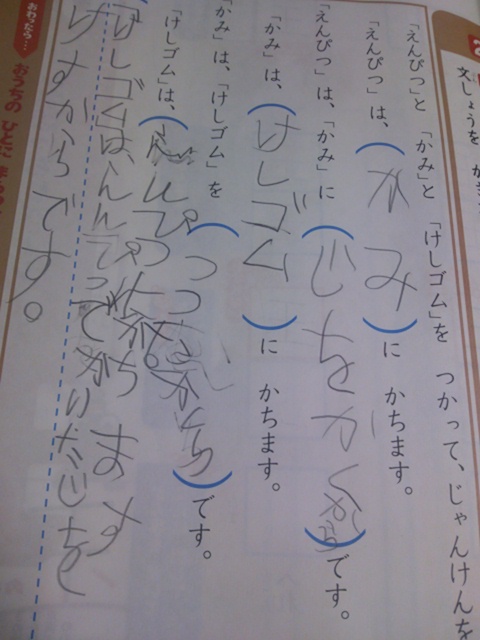 文しょうを
「えんぴつ」と 「かみ」と 「けしゴム」を つかって、じゃんけんを
「えんぴつ」は、(かみ)に かちます。
「えんぴつ」は、「かみ」に(じをかくから)です。
「かみ」は、(けしゴム)に かちます。
「かみ」は、「けしゴム」を(つつむから)です。
「けしゴム」は、(えんぴつ
けしゴムは、えんぴつにかちます
けすからです。
おわったら…
おうちの ひとに